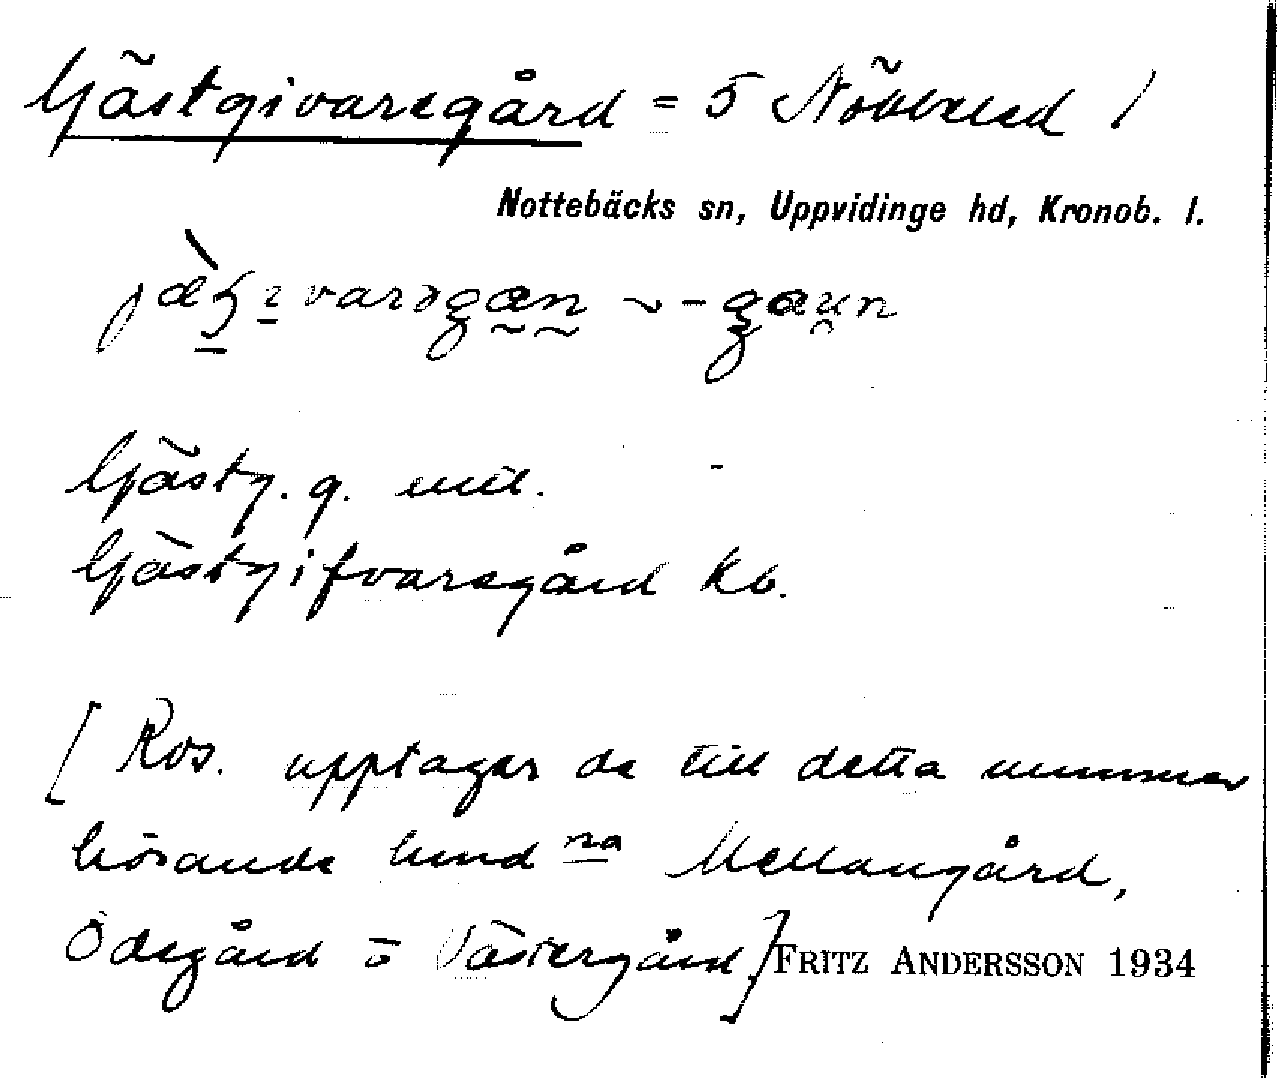 Gästgivaregård = 5 Nöbbeled /
Nottebäcks sn, Uppvidinge hd, Kronob. l.
Gästg. g. uul.
Gästgifvaregård kb.
[ Ros. upptager de till detta nummer
hörande hmd na Mellangård,
Ödegård o Västergård]
FRITZ ANDERSSON 1934